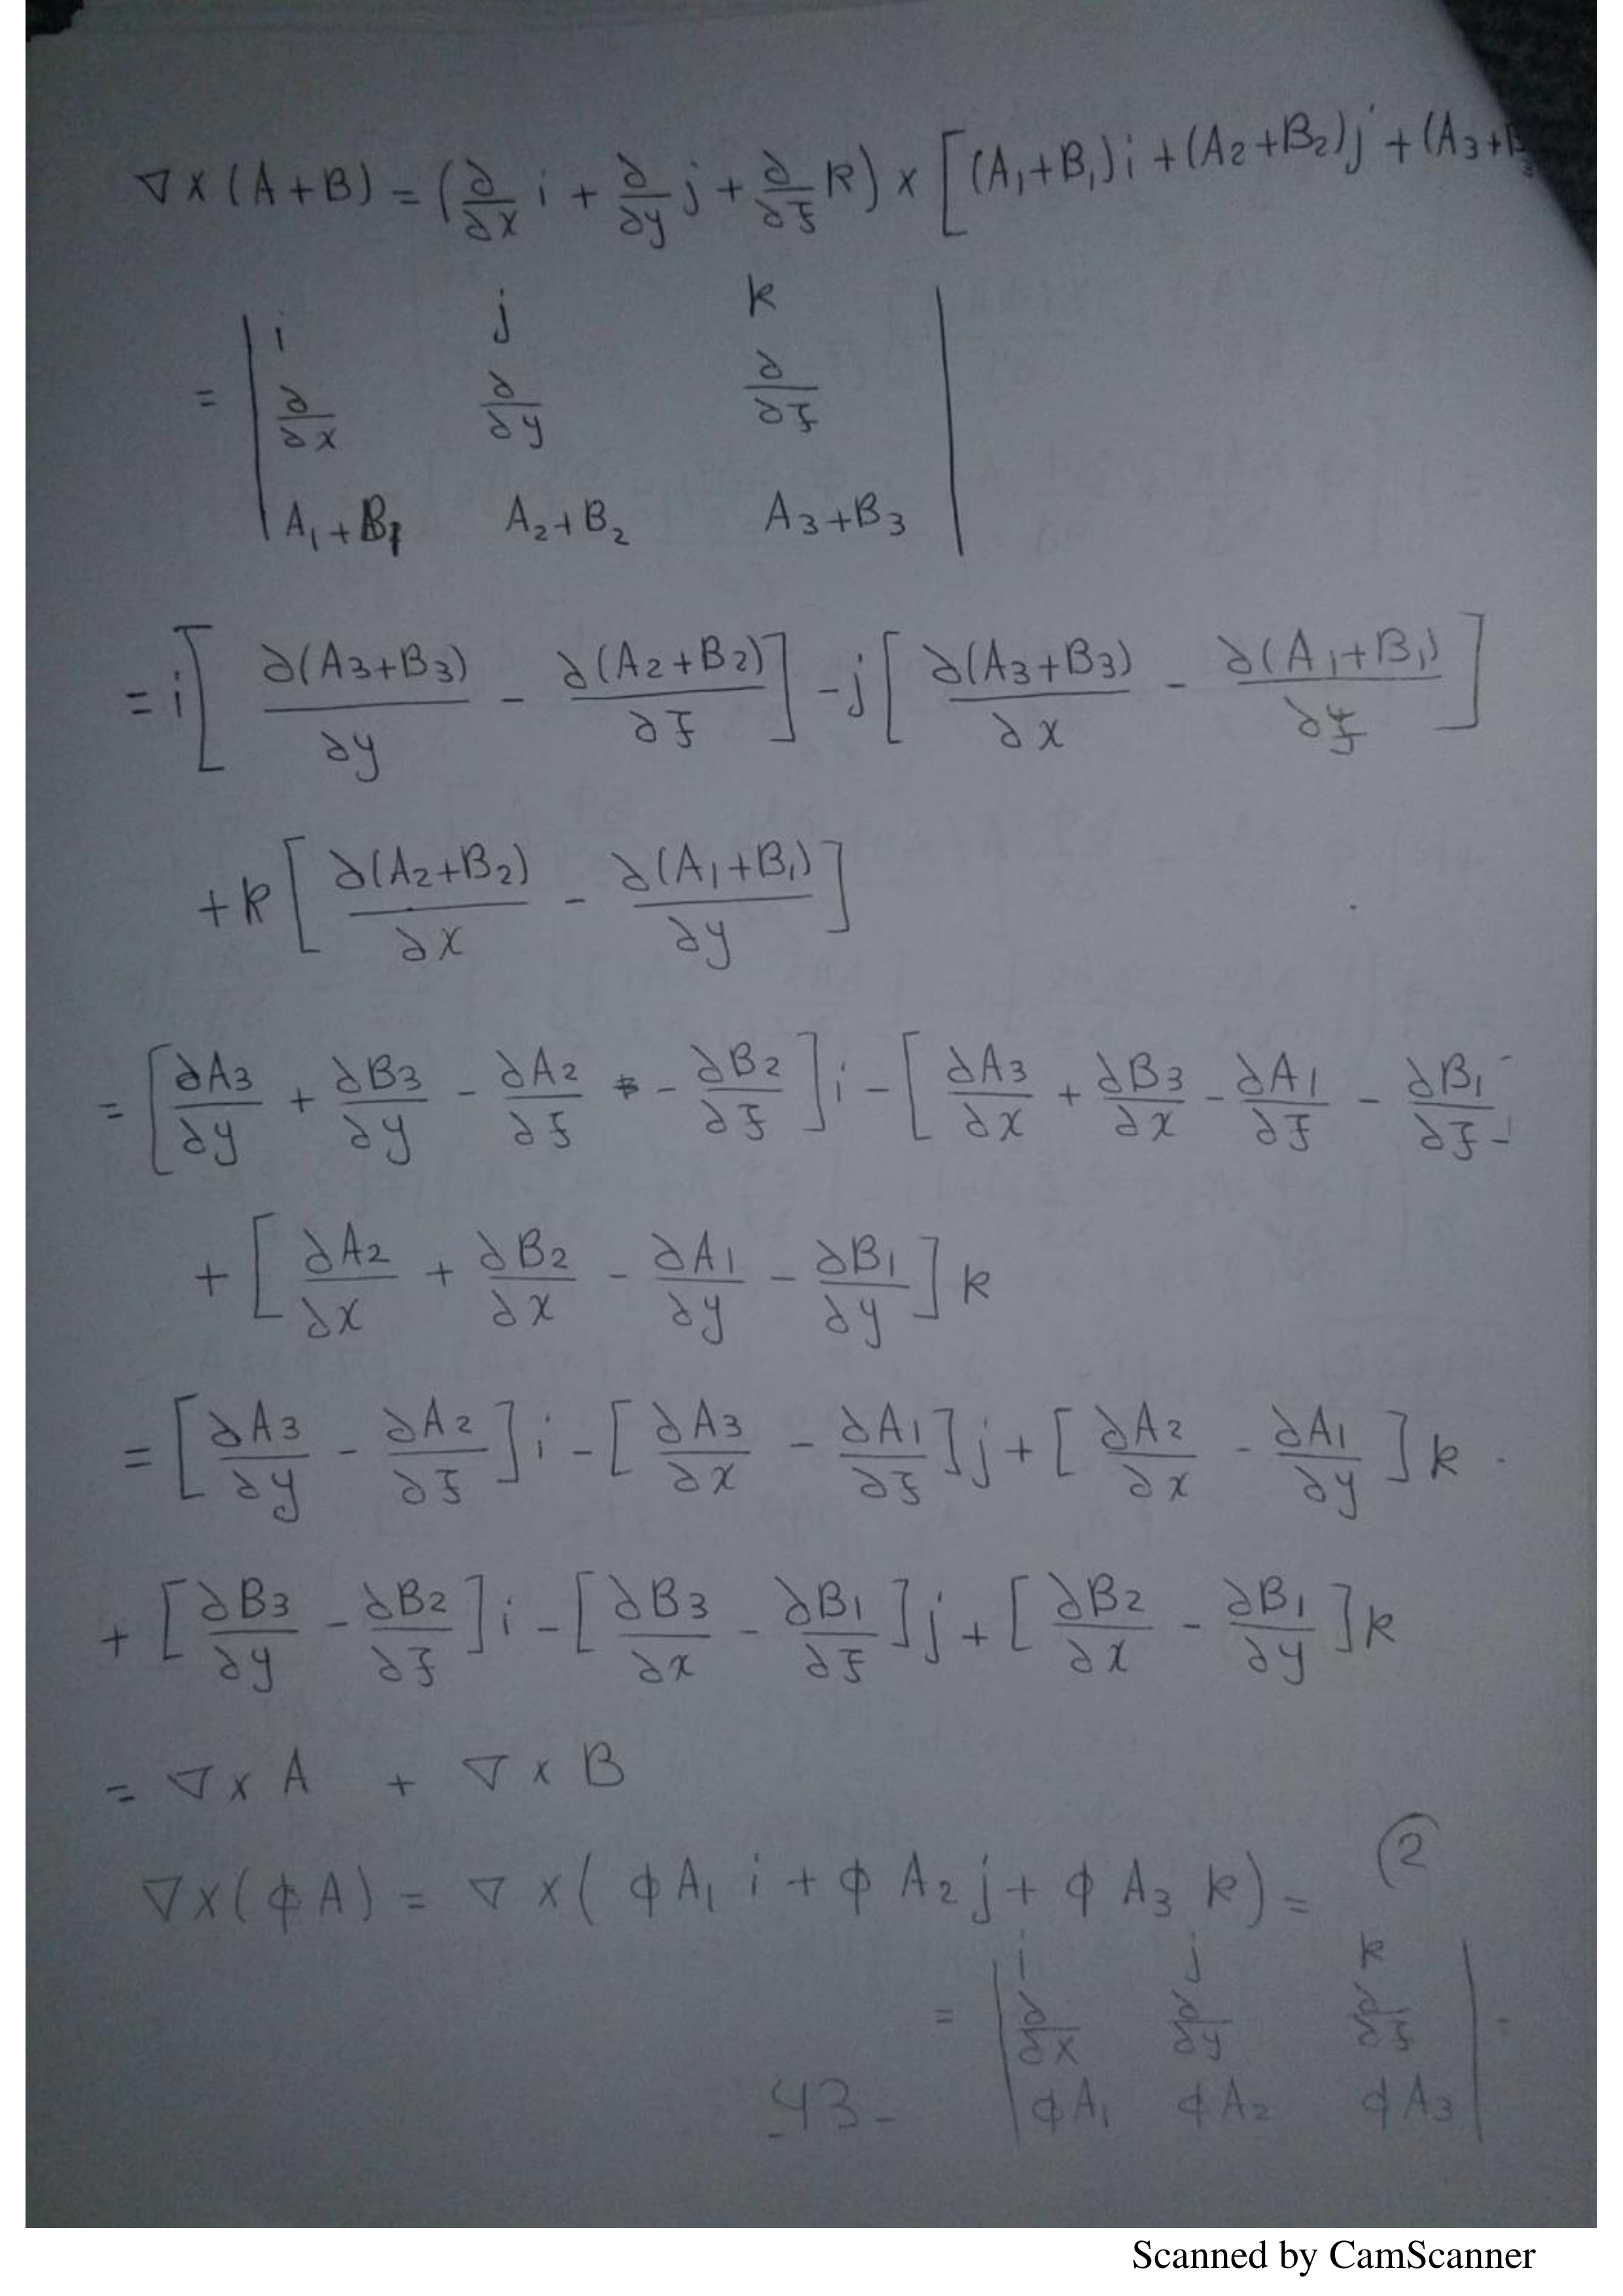 ∇ x (A + B) = (∂/∂x i + ∂/∂y j + ∂/∂z k) x [(A₁+B₁)i + (A₂+B₂)j + (A₃+B₃
= | i j k |
| ∂/∂x ∂/∂y ∂/∂z |
| A₁+B₁ A₂+B₂ A₃+B₃ |
= i[ ∂(A₃+B₃)/∂y - ∂(A₂+B₂)/∂z ] - j[ ∂(A₃+B₃)/∂x - ∂(A₁+B₁)/∂z ]
+ k[ ∂(A₂+B₂)/∂x - ∂(A₁+B₁)/∂y ]
= [ ∂A₃/∂y + ∂B₃/∂y - ∂A₂/∂z - ∂B₂/∂z ] i - [ ∂A₃/∂x + ∂B₃/∂x - ∂A₁/∂z - ∂B₁/∂z
+ [ ∂A₂/∂x + ∂B₂/∂x - ∂A₁/∂y - ∂B₁/∂y ] k
= [ ∂A₃/∂y - ∂A₂/∂z ] i - [ ∂A₃/∂x - ∂A₁/∂z ] j + [ ∂A₂/∂x - ∂A₁/∂y ] k
+ [ ∂B₃/∂y - ∂B₂/∂z ] i - [ ∂B₃/∂x - ∂B₁/∂z ] j + [ ∂B₂/∂x - ∂B₁/∂y ] k
= ∇ x A + ∇ x B
(2
∇ x (ϕ A) = ∇ x ( ϕ A₁ i + ϕ A₂ j + ϕ A₃ k ) =
= | i j k |
| ∂/∂x ∂/∂y ∂/∂z |
| ϕA₁ ϕA₂ ϕA₃ |
-43-
Scanned by CamScanner